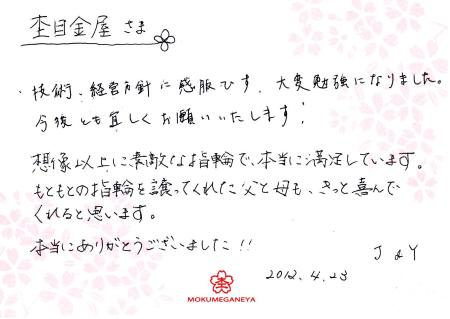 杢目金屋 さま
・技術、経営方針に感服です。大変勉強になりました。
今後とも宜しくお願いいたします!
想像以上に素敵な指輪で、本当に満足しています。
もともとの指輪を譲ってくれた父と母も、きっと喜んで
くれると思います。
本当にありがとうございました!!
J & Y
2012.4.23
杢
MOKUMEGANEYA